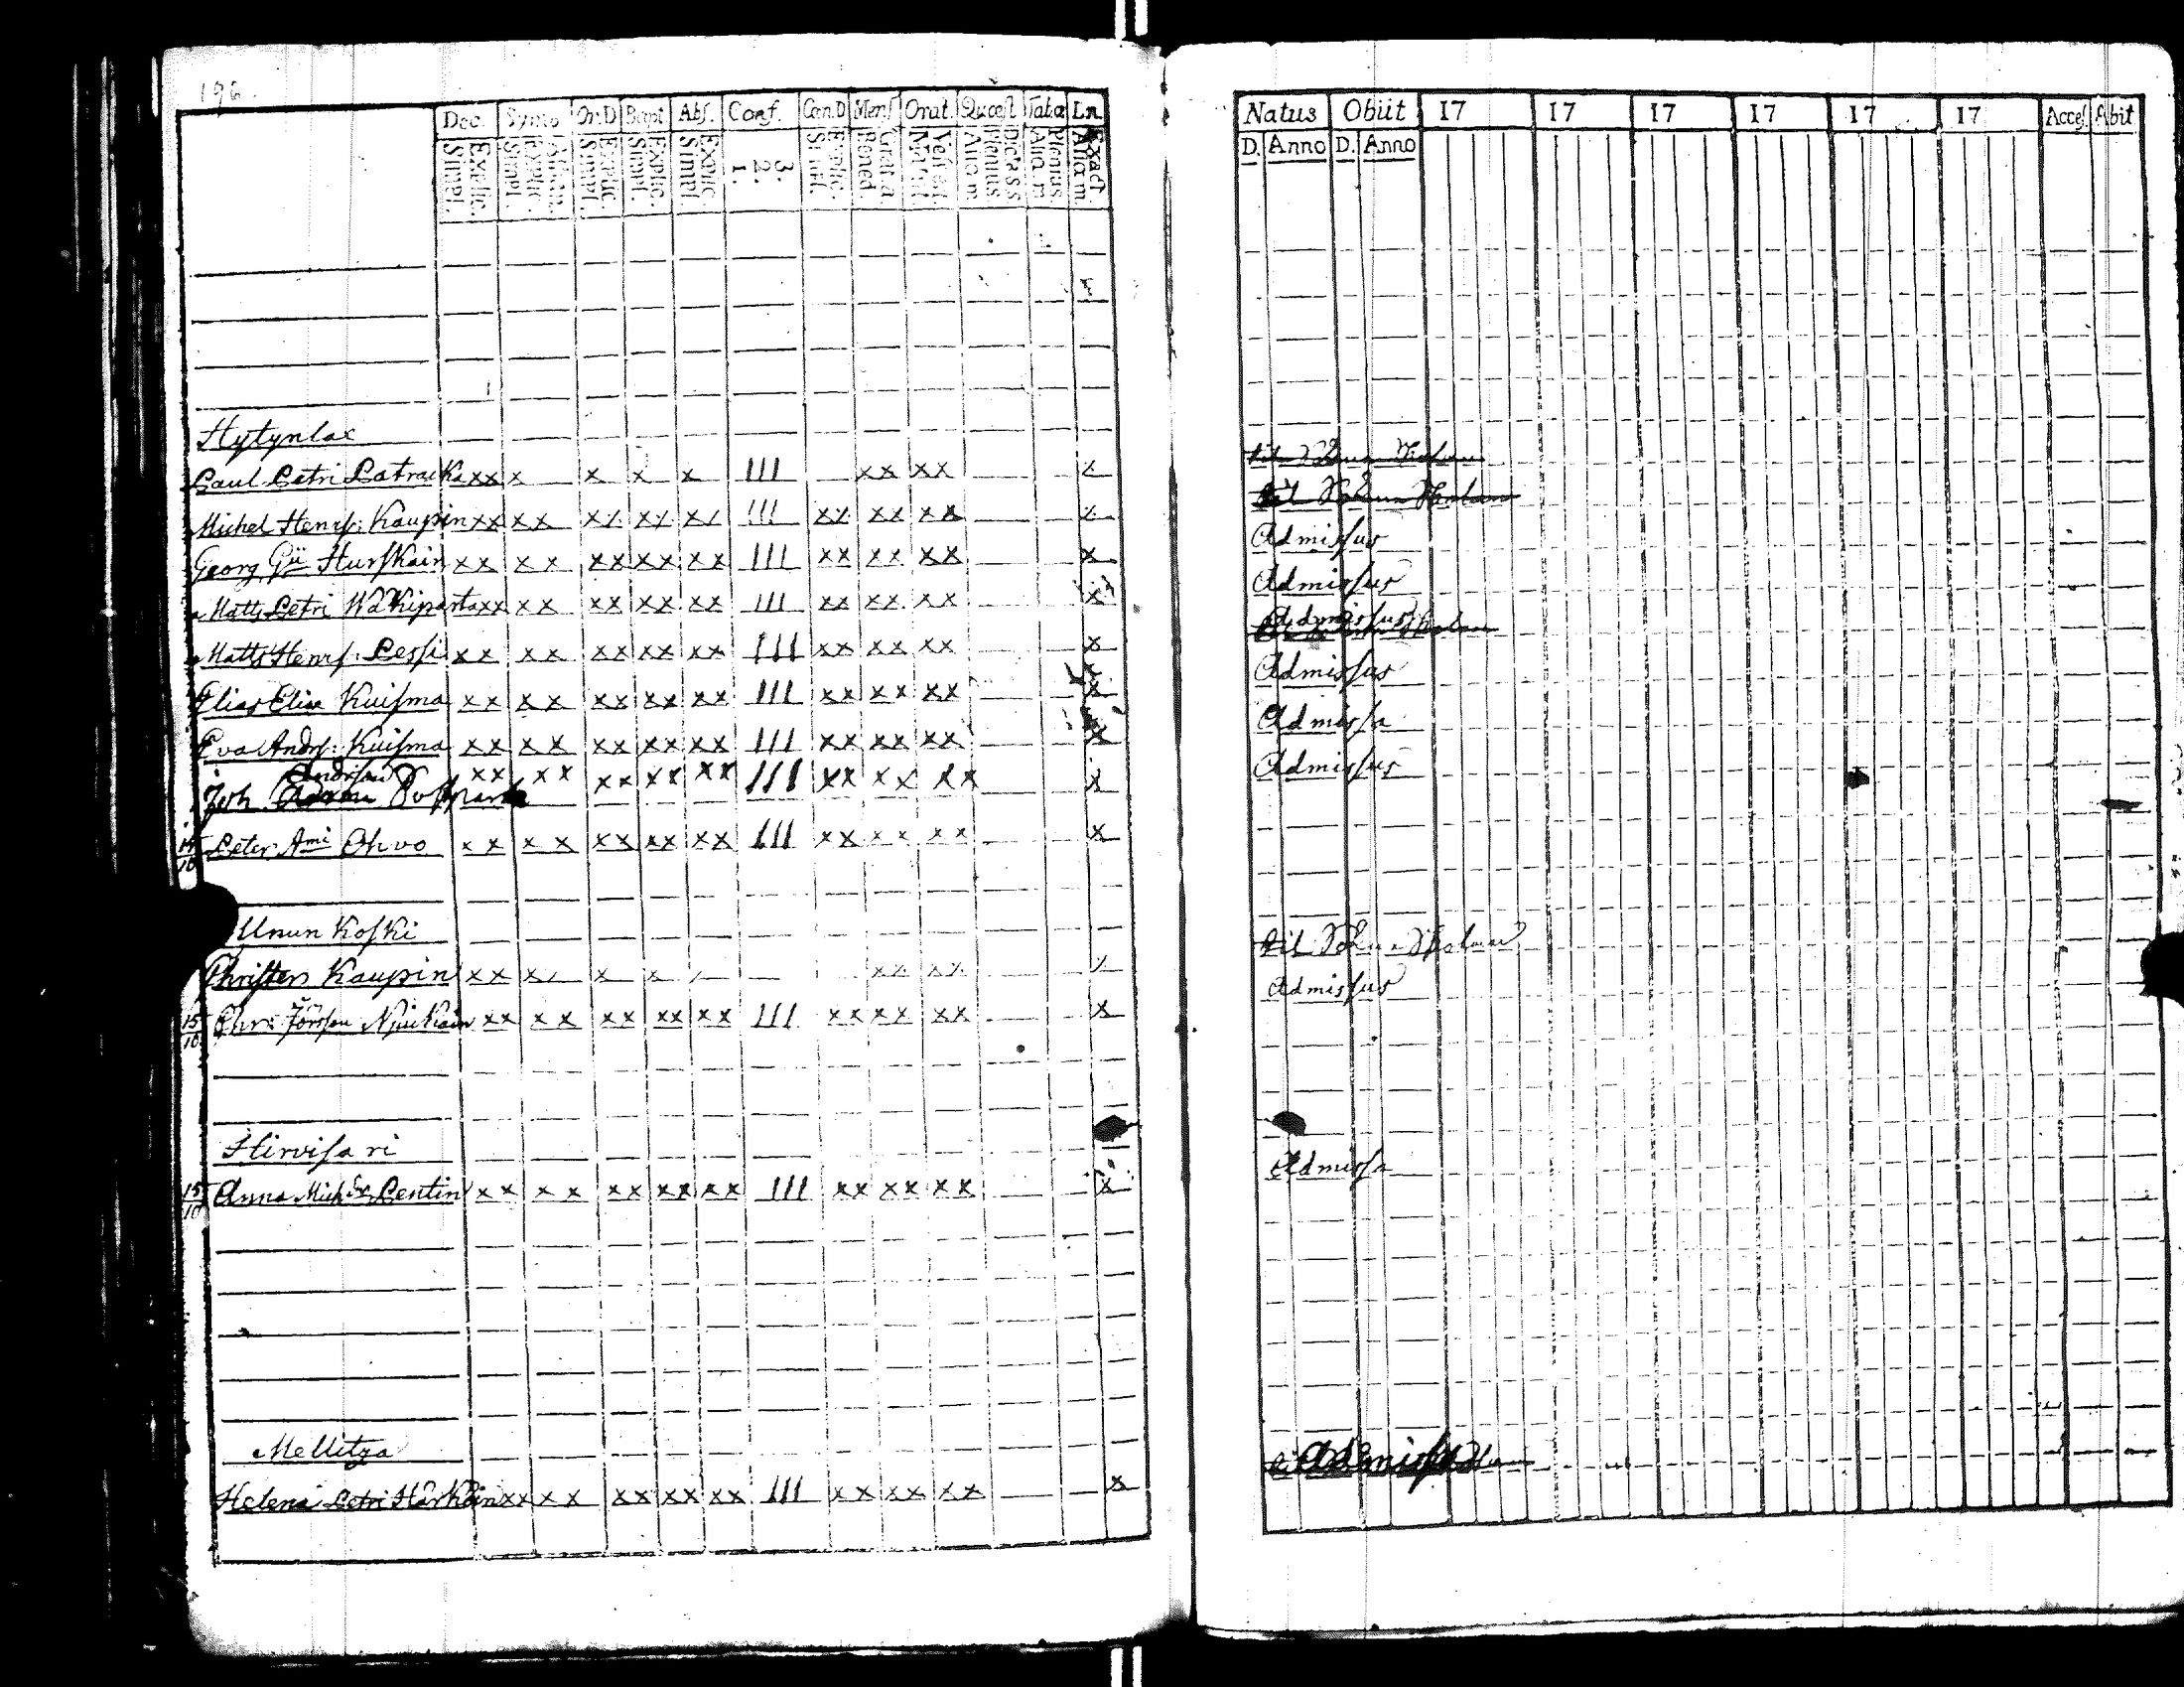 196.
Dec. Symb Or.D Bapt Abs. Conf. Cœn.D Mens Orat. Quœst Tabœ Ln.
Explic. Simpl. Explic. Simpl. Explic. Simpl. Explic. Simpl. Explic. Simpl 3. 2. 1. Explic. Simpl. Grat.a Bened. Dict.s.s Plenius Aliq m Plenius Aliq m Exact. Aliq m
Hytynlax
Paul Petri Patracka xx x x x x III xx xx x
Michel Henrs: Kaupin xx xx xx xx xx III xx xx xx x
Georg Hurskain xx xx xx xx xx III xx xx xx x
Matts Petri Wäkiparta xx xx xx xx xx III xx xx xx x
Matts Henrs: Pessi xx xx xx xx xx III xx xx xx x
Elias Eliæ Kuisma xx xx xx xx xx III xx xx xx x
Eva Andrs: Kuisma xx xx xx xx xx III xx xx xx x
Andrsm xx xx xx xx xx III xx xx xx x
Joh
14/10 Peter Ami Ohvo xx xx xx xx xx III xx xx xx x
Unun Koski
Christer Kaupin xx x x x xx xx x
15/10 Chr: Jörsson Njukain xx xx xx xx xx III xx xx xx x
Hirvisari
15/10 Anna Mich Dr Pentin xx xx xx xx xx III xx xx xx x
Mellitza
Helena Petri Härköin xx xx xx xx xx III xx xx xx x
Natus Obiit 17 17 17 17 17 17 Acces Abit
D. Anno D. Anno
Admissus
Admissus
Admissus
Admissus
Admissa
Admissus
til
Admissus
Admissa